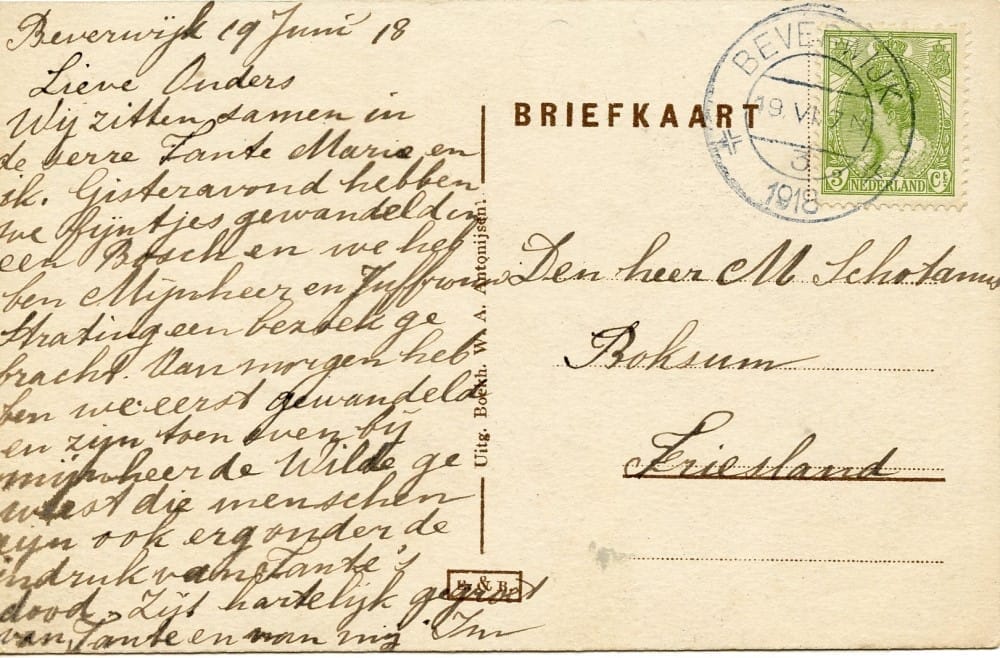 Beverwijk 19 Juni 18
Lieve Ouders
Wij zitten samen in
de serre Tante Marie en
ik. Gisteravond hebben
we fijntjes gewandeld in
een Bosch en we heb
ben Mijnheer en Juffrouw
Strating een bezoek ge
bracht. Van morgen heb
ben we eerst gewandeld
en zijn toen even bij
mijnheer de Wilde ge
weest die menschen
zijn ook erg onder de
indruk van Tante's
dood. Zijt hartelijk gegroet
van Tante en van mij
Uitg. Boekh. W. A. Antonijsen.
E & B
BRIEFKAART
BEVERWIJK
19. VI
3
1918
3 NEDERLAND Ct
Den heer M Schotanus
Boksum
Friesland